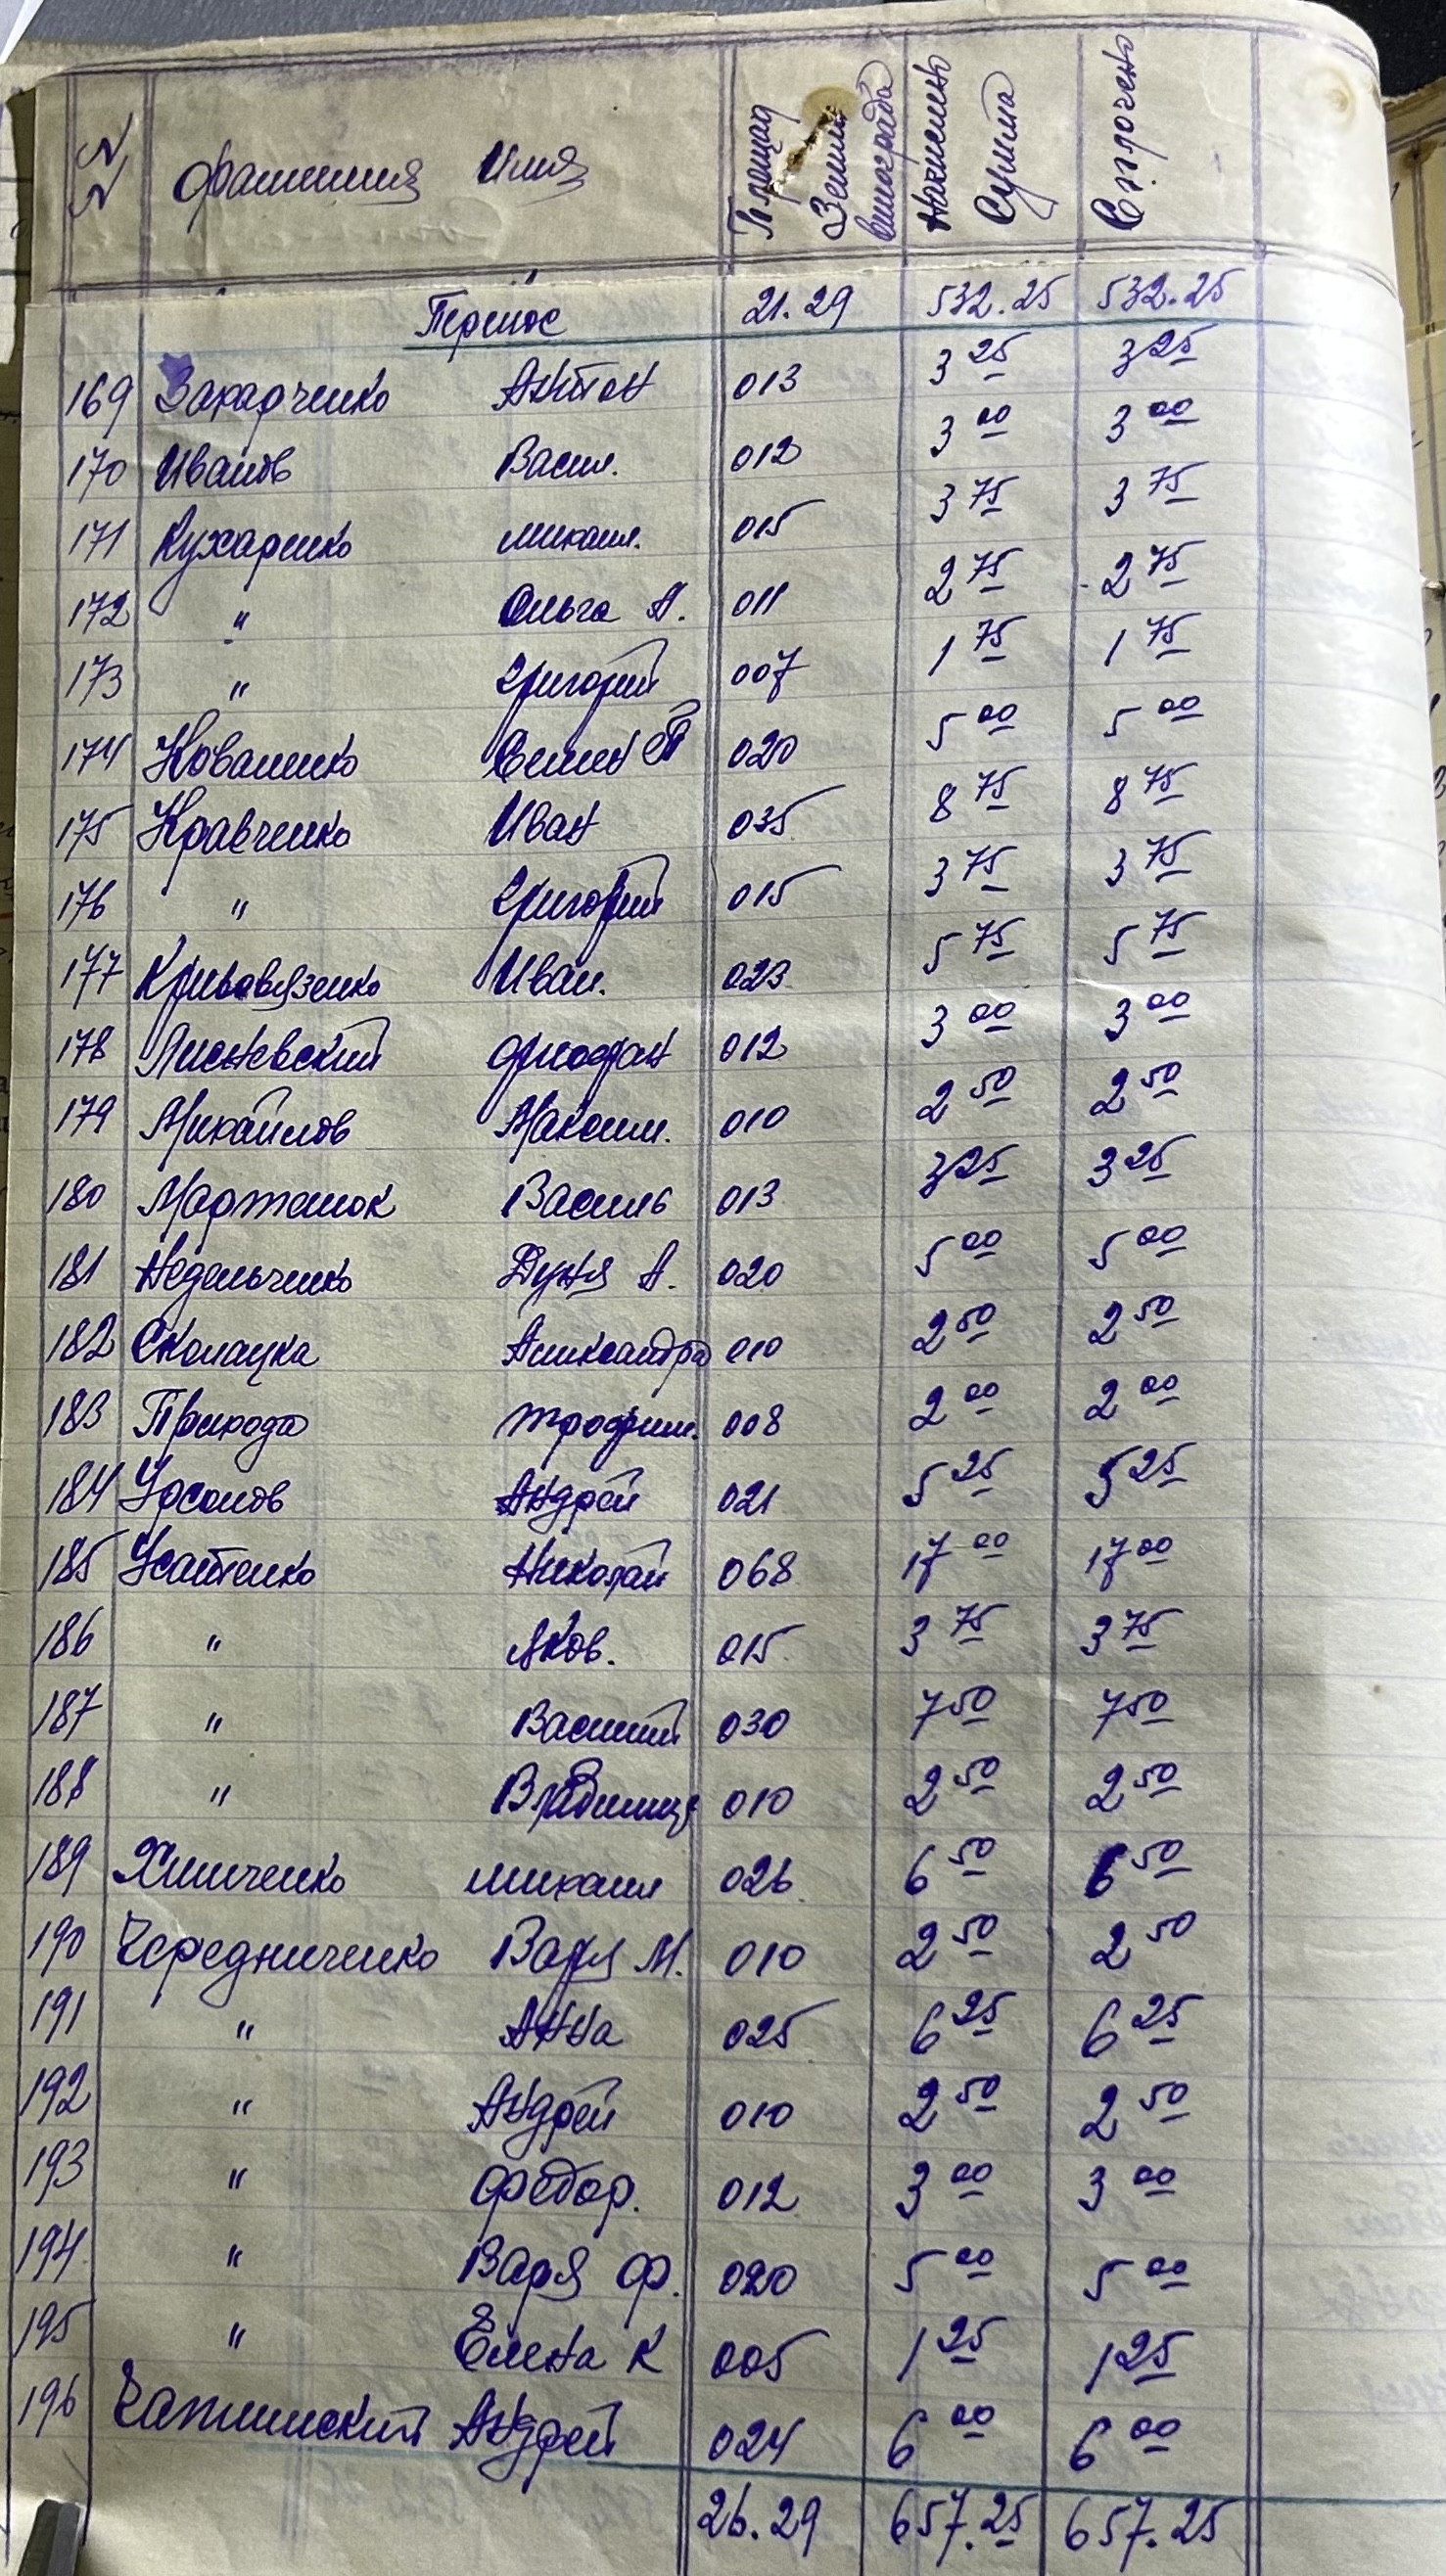 NN Фамилия Имя Площад Земли винограда Начислено Сумма Сплочено
Перенос 21.29 532.25 532.25
169 Захарченко Антон 013 3 25 3 25
170 Иванов Васил. 012 3 00 3 00
171 Кухаренко Михаил. 015 3 75 3 75
172 " Ольга А. 011 2 75 2 75
173 " Григорий 007 1 75 1 75
174 Коваленко Семен П 020 5 00 5 00
175 Кравченко Иван 035 8 75 8 75
176 " Григорий 015 3 75 3 75
177 Кривовязенко Иван. 023 5 75 5 75
178 Лисневский Феофан 012 3 00 3 00
179 Михайлов Максим. 010 2 50 2 50
180 Мартенюк Василь 013 3 25 3 25
181 Недельченко Дуня А. 020 5 00 5 00
182 Сколацка Аликсандра 010 2 50 2 50
183 Приходо Трофим. 008 2 00 2 00
184 Урсолов Андрей 021 5 25 5 25
185 Усатенко Николай 068 17 00 17 00
186 " Яков. 015 3 75 3 75
187 " Василий 030 7 50 7 50
188 " Владимир 010 2 50 2 50
189 Химченко Михаил 026 6 50 6 50
190 Чередниченко Варя М. 010 2 50 2 50
191 " Анна 025 6 25 6 25
192 " Андрей 010 2 50 2 50
193 " Федор. 012 3 00 3 00
194 " Варя Ф. 020 5 00 5 00
195 " Елена К 005 1 25 1 25
196 Чаплинский Андрей 024 6 00 6 00
26.29 657.25 657.25